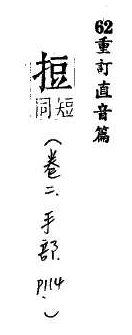 62重訂直音篇
挋
短同
(卷二.手部.P114.)